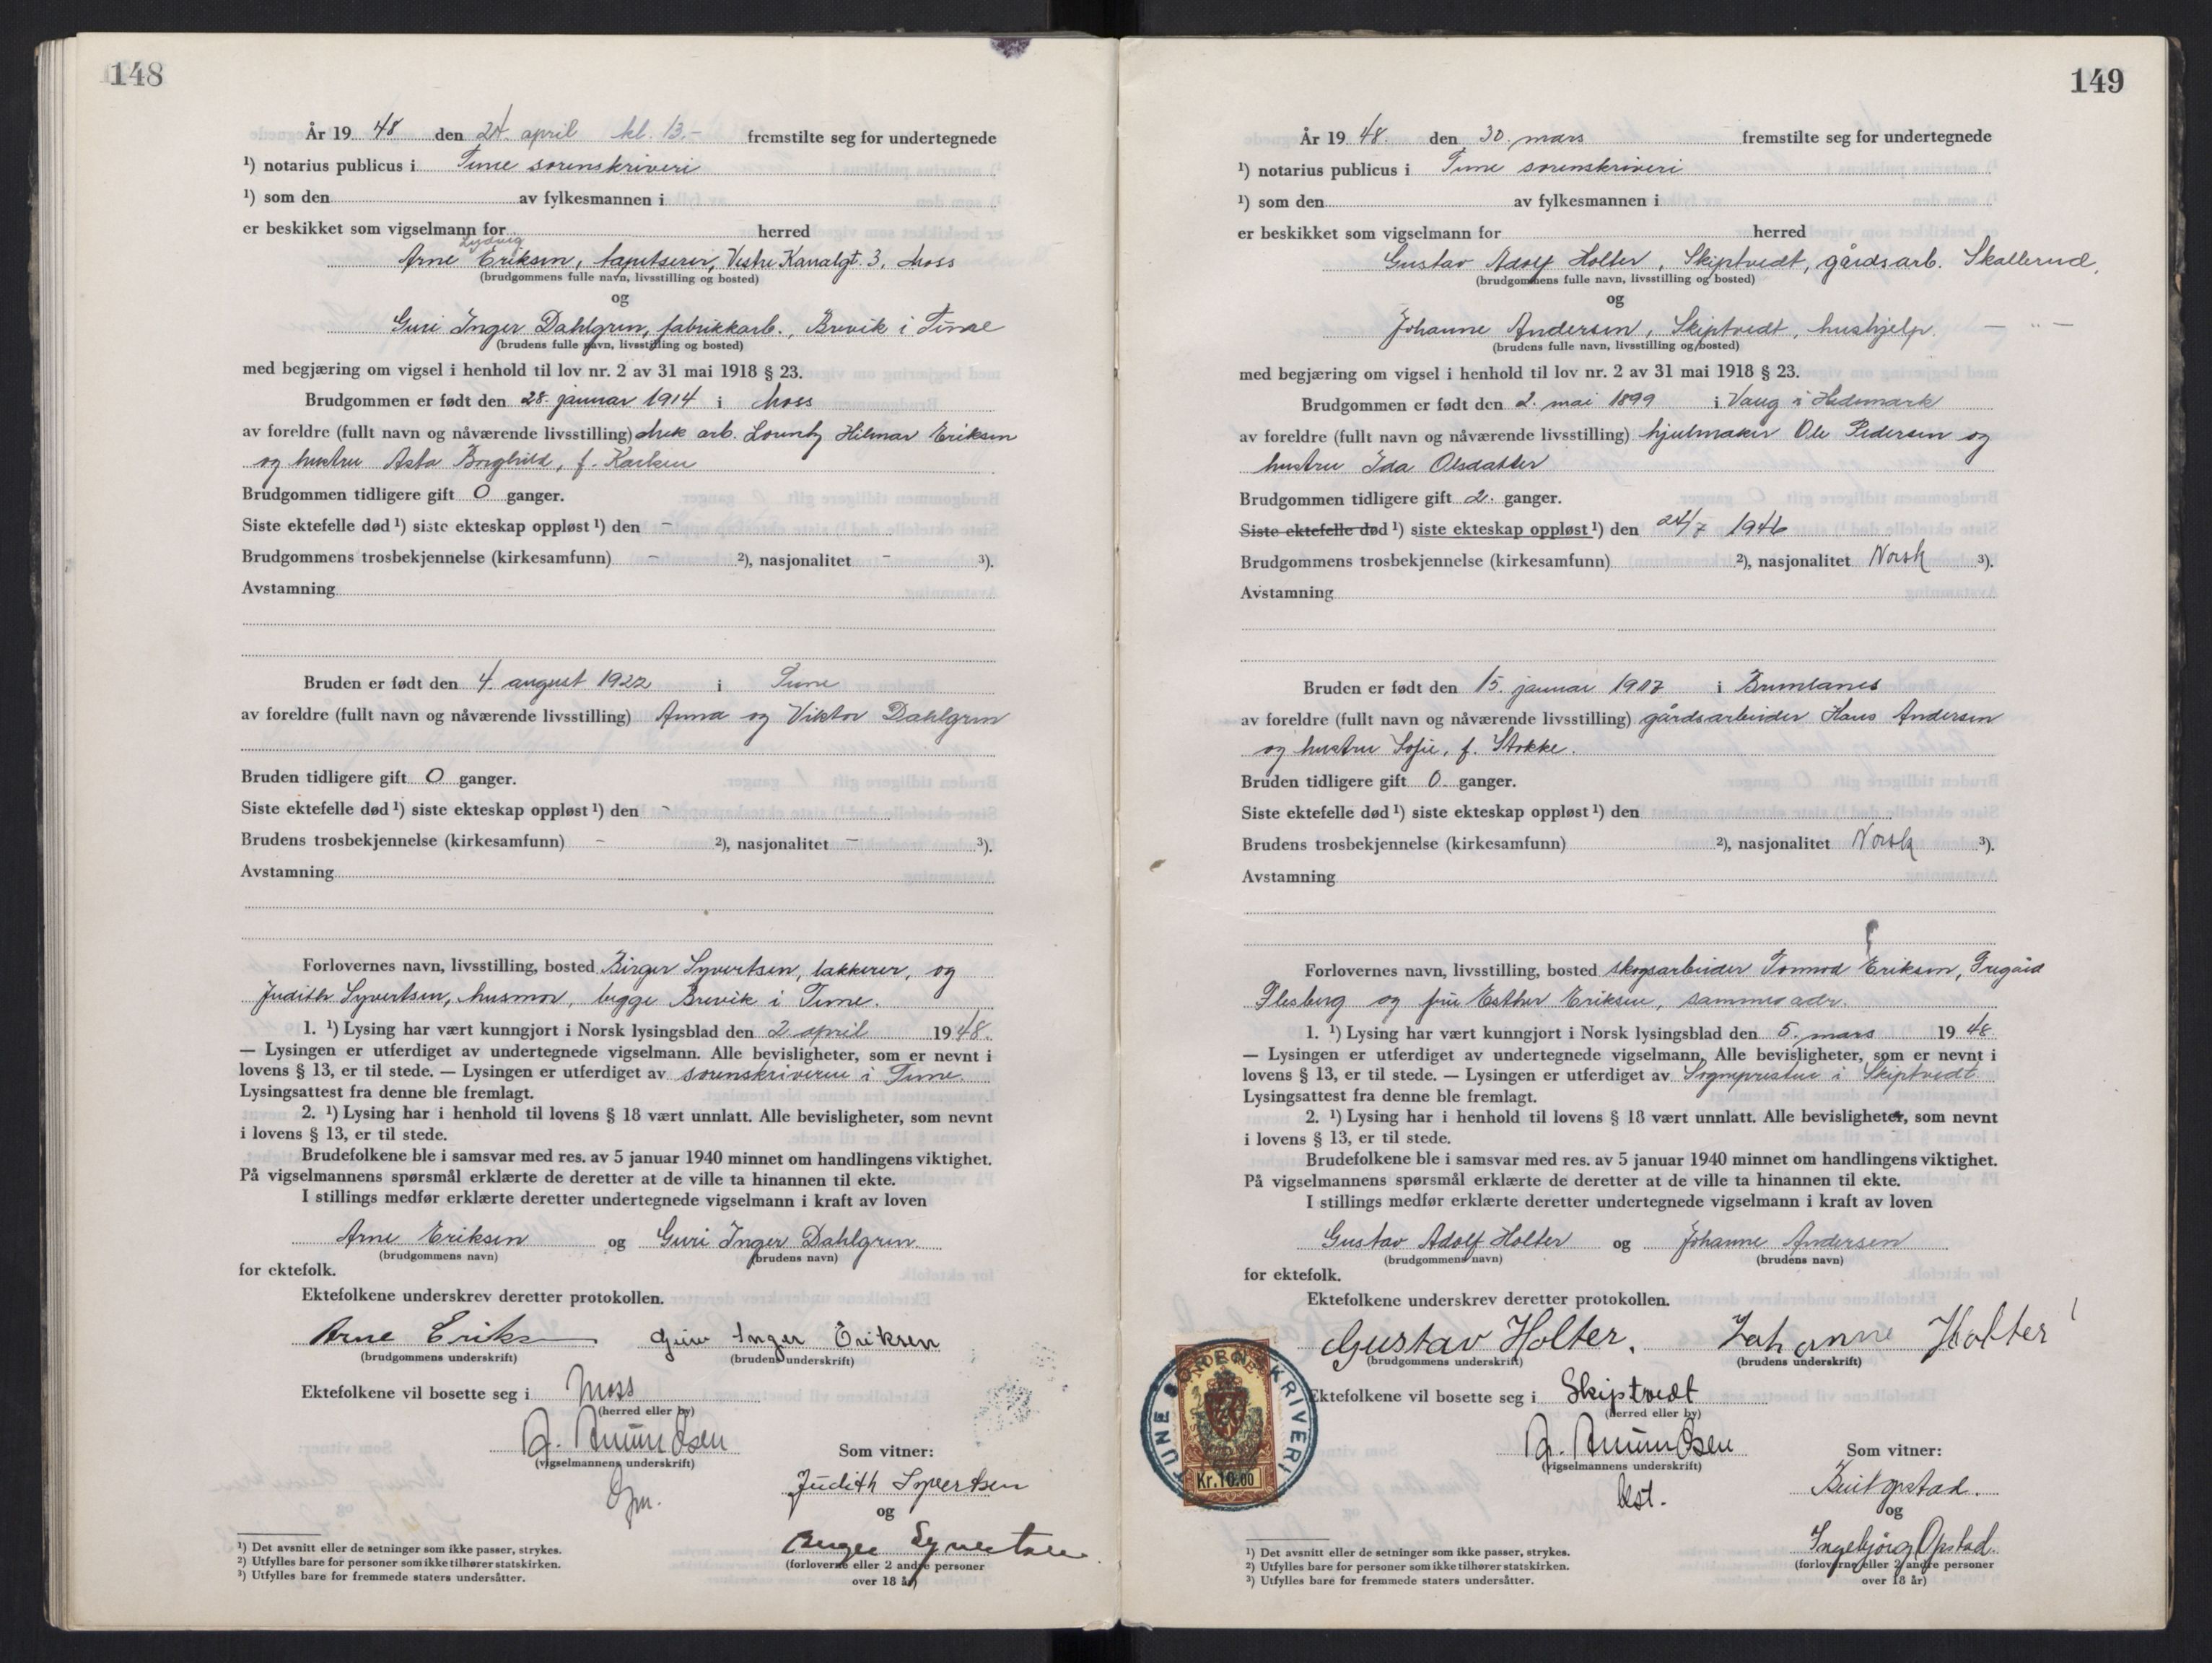 148
År 19 48 den 24. april kl. 13.- fremstilte seg for undertegnede
¹) notarius publicus i Tune sorenskriveri
¹) som den av fylkesmannen i
er beskikket som vigselmann for herred
Ludvig
Arne Eriksen, tapetserer, Vestre Kanalgt. 3, Moss
(brudgommens fulle navn, livsstilling og bosted)
og
Guri Inger Dahlgren, fabrikkarb., Brevik i Tune
(brudens fulle navn, livsstilling og bosted)
med begjæring om vigsel i henhold til lov nr. 2 av 31 mai 1918 § 23.
Brudgommen er født den 28. januar 1914 i Moss
av foreldre (fullt navn og nåværende livsstilling) mek arb. Hilmar Eriksen
og hustru Asta Borghild, f. Karlsen
Brudgommen tidligere gift 0 ganger.
Siste ektefelle død ¹) siste ekteskap oppløst ¹) den -
Brudgommens trosbekjennelse (kirkesamfunn) - ²), nasjonalitet - ³).
Avstamning
Bruden er født den 4. august 1922 i Tune
av foreldre (fullt navn og nåværende livsstilling) Anna og Viktor Dahlgren
Bruden tidligere gift 0 ganger.
Siste ektefelle død ¹) siste ekteskap oppløst ¹) den -
Brudens trosbekjennelse (kirkesamfunn) - ²), nasjonalitet - ³).
Avstamning
Forlovernes navn, livsstilling, bosted Birger Syvertsen, lakkerer, og
Judith Syvertsen, husmor, begge Brevik i Tune.
1. ¹) Lysing har vært kunngjort i Norsk lysingsblad den 2. april 1948.
— Lysingen er utferdiget av undertegnede vigselmann. Alle bevisligheter, som er nevnt i
lovens § 13, er til stede. — Lysingen er utferdiget av sorenskriveren i Tune.
Lysingsattest fra denne ble fremlagt.
2. ¹) Lysing har i henhold til lovens § 18 vært unnlatt. Alle bevisligheter, som nevnt
i lovens § 13, er til stede.
Brudefolkene ble i samsvar med res. av 5 januar 1940 minnet om handlingens viktighet.
På vigselmannens spørsmål erklærte de deretter at de ville ta hinannen til ekte.
I stillings medfør erklærte deretter undertegnede vigselmann i kraft av loven
Arne Eriksen og Guri Inger Dahlgren.
(brudgommens navn) (brudens navn)
for ektefolk.
Ektefolkene underskrev deretter protokollen.
Arne Eriksen Guri Inger Eriksen
(brudgommens underskrift) (brudens underskrift)
Ektefolkene vil bosette seg i Moss
(herred eller by)
A. Amundsen
(vigselmannens underskrift)
Som vitner:
Judith Syvertsen
og
Birger Syvertsen
(forloverne eller 2 andre personer
over 18 år)
¹) Det avsnitt eller de setninger som ikke passer, strykes.
²) Utfylles bare for personer som ikke tilhører statskirken.
³) Utfylles bare for fremmede staters undersåtter.
149
År 19 48. den 30. mars fremstilte seg for undertegnede
¹) notarius publicus i Tune sorenskriveri
¹) som den av fylkesmannen i
er beskikket som vigselmann for herred
Gustav Adolf Holter, Skiptvedt, gårdsarb. Skallerud,
(brudgommens fulle navn, livsstilling og bosted)
og
Johanne Andersen, Skiptvedt, hushjelp. — " —
(brudens fulle navn, livsstilling og bosted)
med begjæring om vigsel i henhold til lov nr. 2 av 31 mai 1918 § 23.
Brudgommen er født den 2. mai 1899 i Vang i Hedemark
av foreldre (fullt navn og nåværende livsstilling) hjulmaker Ole Pedersen og
hustru Ida Olsdatter
Brudgommen tidligere gift 2. ganger.
Siste ektefelle død ¹) siste ekteskap oppløst ¹) den 24/7 1946
Brudgommens trosbekjennelse (kirkesamfunn) ²), nasjonalitet Norsk ³).
Avstamning
Bruden er født den 15. januar 1907 i Brunlanes
av foreldre (fullt navn og nåværende livsstilling) gårdsarbeider Hans Andersen
og hustru Sofie, f. Stokke.
Bruden tidligere gift 0. ganger.
Siste ektefelle død ¹) siste ekteskap oppløst ¹) den
Brudens trosbekjennelse (kirkesamfunn) ²), nasjonalitet Norsk ³).
Avstamning
Forlovernes navn, livsstilling, bosted skogsarbeider Tormod Eriksen,
Flesberg og fru Esther Eriksen, samme adr.
1. ¹) Lysing har vært kunngjort i Norsk lysingsblad den 5. mars 1948.
— Lysingen er utferdiget av undertegnede vigselmann, Alle bevisligheter, som er nevnt i
lovens § 13, er til stede. — Lysingen er utferdiget av Sognepresten i Skiptvedt
Lysingsattest fra denne ble fremlagt.
2. ¹) Lysing har i henhold til lovens § 18 vært unnlatt. Alle bevisligheter, som nevnt
i lovens § 13, er til stede.
Brudefolkene ble i samsvar med res. av 5 januar 1940 minnet om handlingens viktighet.
På vigselmannens spørsmål erklærte de deretter at de ville ta hinannen til ekte.
I stillings medfør erklærte deretter undertegnede vigselmann i kraft av loven
Gustav Adolf Holter og Johanne Andersen
(brudgommens navn) (brudens navn)
for ektefolk.
Ektefolkene underskrev deretter protokollen.
Gustav Holter. Johanne Holter
(brudgommens underskrift) (brudens underskrift)
TUNE SORENSKRIVERI
Kr.10.00
Ektefolkene vil bosette seg i Skiptvedt
(herred eller by)
A. Amundsen
(vigselmannens underskrift)
Som vitner:
Opstad.
og
Ingebjørg Opstad.
(forloverne eller 2 andre personer
over 18 år)
¹) Det avsnitt eller de setninger som ikke passer, strykes.
²) Utfylles bare for personer som ikke tilhører statskirken.
³) Utfylles bare for fremmede staters undersåtter.